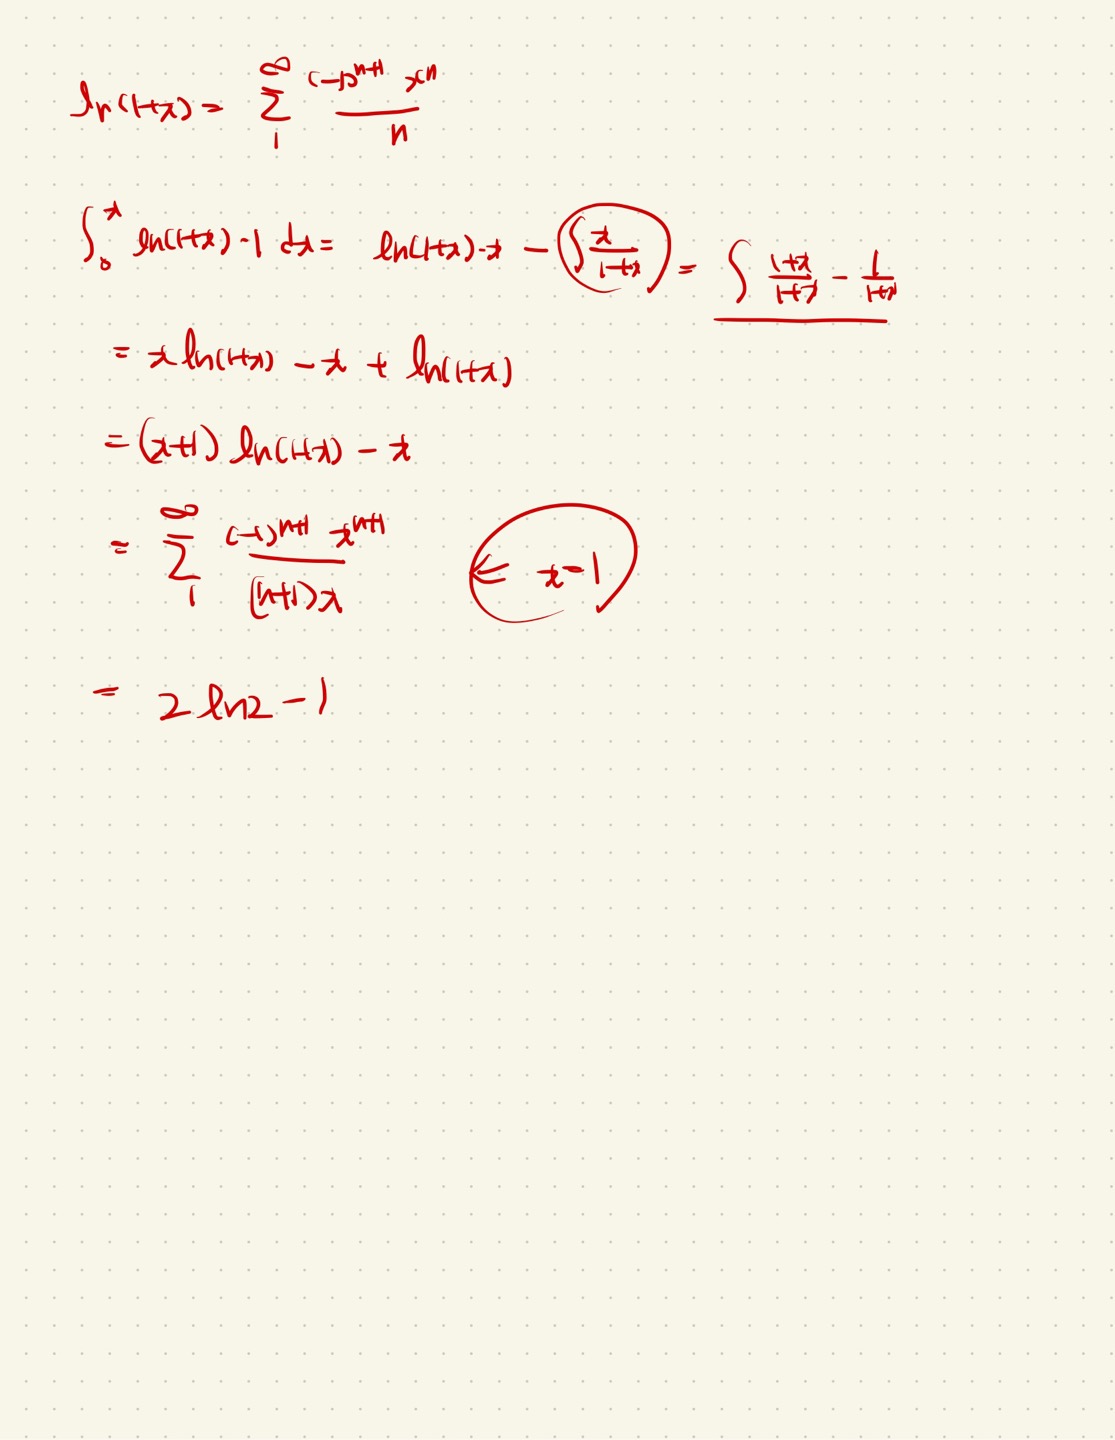 ln(1+x) = ∞ Σ 1 (-1)^{n+1} x^n / n
∫_0^x ln(1+x)·1 dx = ln(1+x)·x - ∫ x/(1+x) = ∫ (1+x)/(1+x) - 1/(1+x)
= x ln(1+x) - x + ln(1+x)
= (x+1) ln(1+x) - x
= ∞ Σ 1 (-1)^{n+1} x^{n+1} / (n+1)x ⇐ x=1
= 2 ln2 - 1